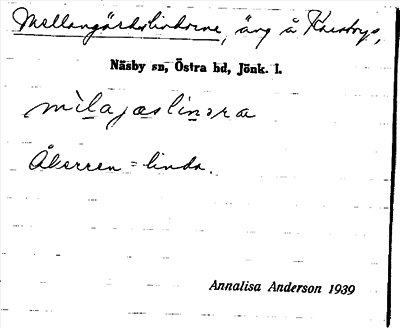 Mellangårdslindorna, äng å Knestorp,
Näsby sn, Östra hd, Jönk. l.
milajaslinɔra
Åkerren = linda.
Annalisa Anderson 1939